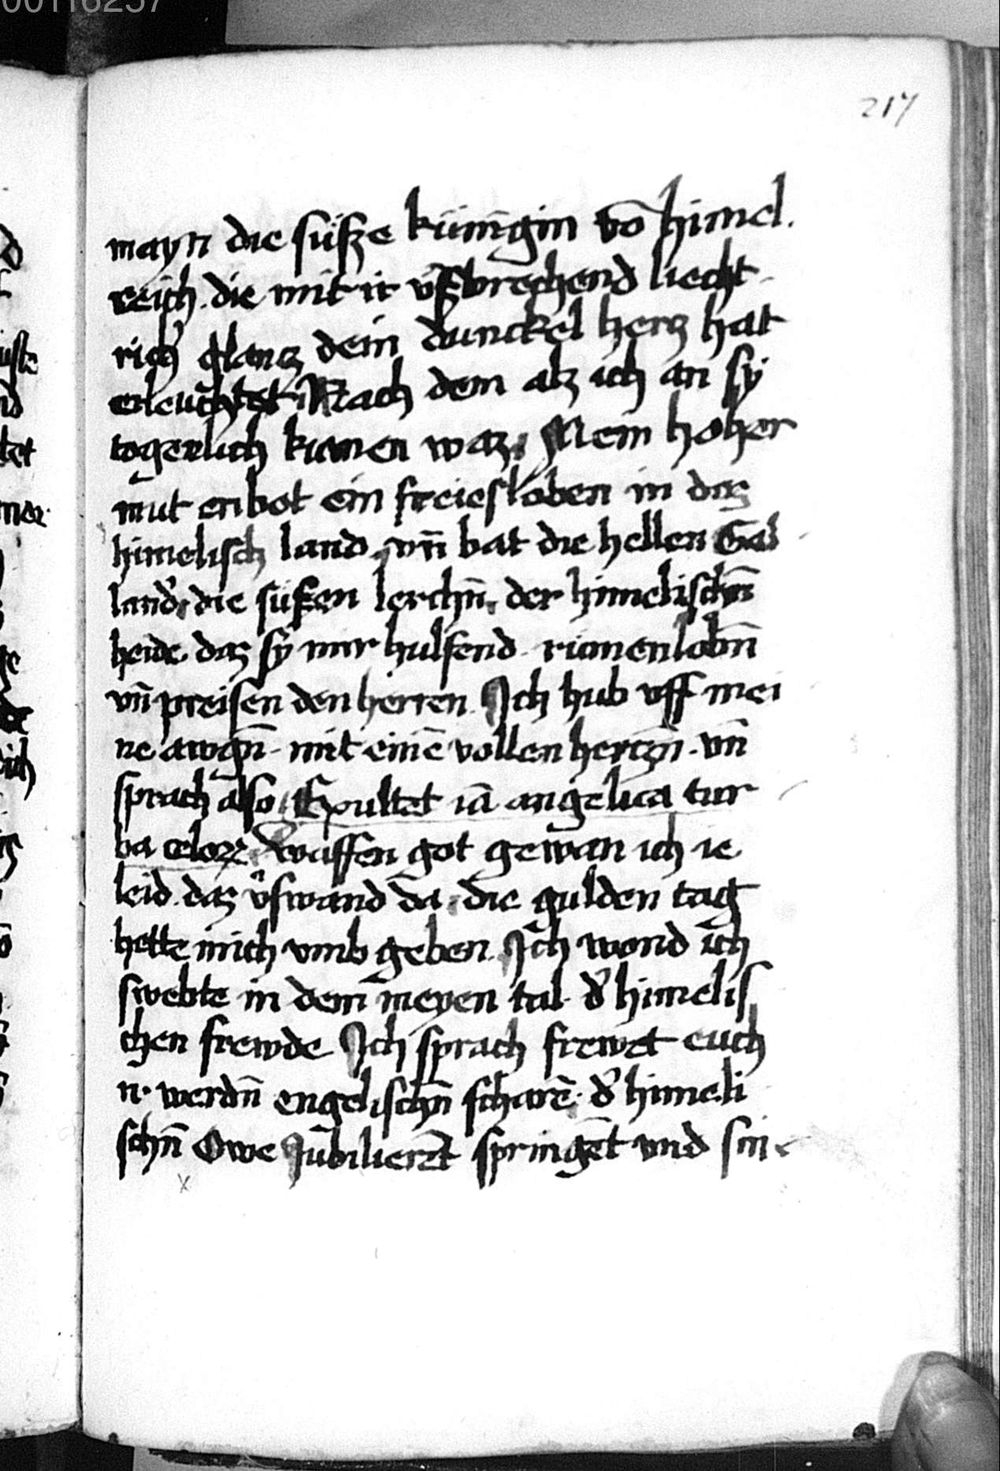 00116257
217
mayn die süsze künigin vō himel.
reich die mit ir vßbrechend liecht
rich' glancz dein dunckel hercz hat
erleuchtet Nach dem alz ich an sy
togerlich kumen waz Mein hoher
mut enbot ein freies loben in daz
himelisch land vn̄ bat die hellen Gal
land' die süßen lerchn̄ der himelischn̄
heide daz sy mir hulfend riamen lobn̄
vn̄ preisen den herren Ich hub vff mei
ne awgn̄ mit einē vollen herczn̄ vn̄
sprach also Exultet iā angelica tur
ba celoꝝ Waffen got gewan ich ie
leid daz v'swand da die gulden tag
hette mich vmb geben Ich wond ich
swebte in dem meyen tal d' himelis
chen frewde Ich sprach frewet euch
ir werdn̄ engelischn̄ scharē d' himeli
schn̄ Owe Jubilierēt springēt vnd sin